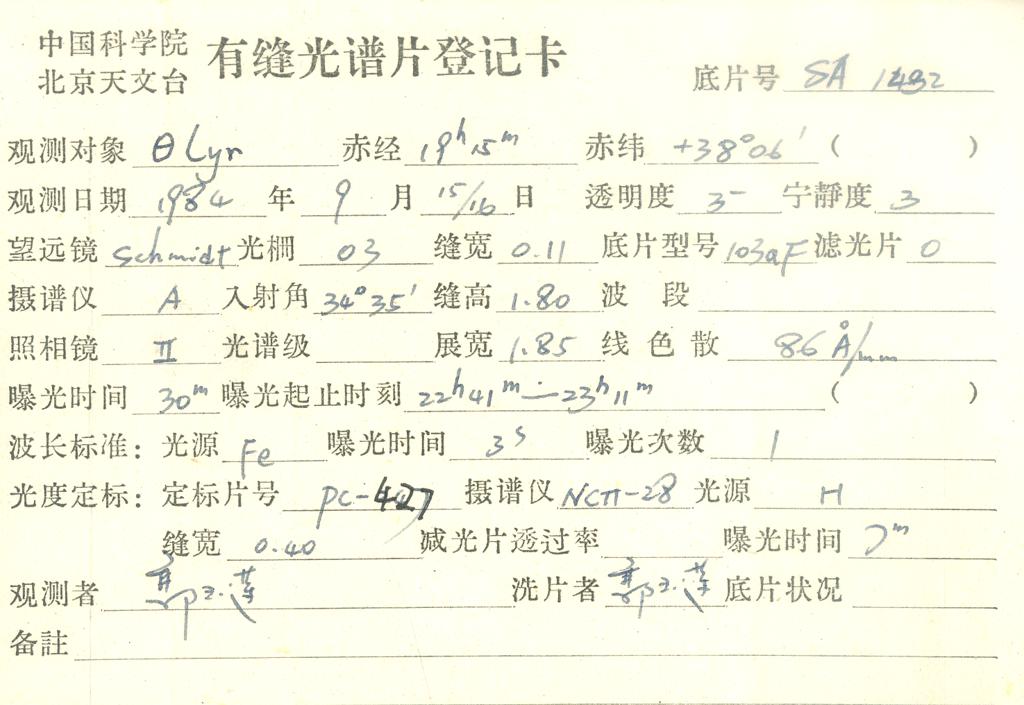 中国科学院
北京天文台
有缝光谱片登记卡
底片号 SA 1432
观测对象 θ Lyr 赤经 19h 15m 赤纬 +38°06′ ( )
观测日期 1984 年 9 月 15/16 日 透明度 5- 宁静度 3
望远镜 Schmidt 光栅 03 缝宽 0.11 底片型号 103aF 滤光片 0
摄谱仪 A 入射角 34°35′ 缝高 1.80 波段
照相镜 II 光谱级 展宽 1.85 线色散 86 Å/mm
曝光时间 30m 曝光起止时刻 22h41m—23h11m ( )
波长标准: 光源 Fe 曝光时间 3s 曝光次数 1
光度定标: 定标片号 PC-427 摄谱仪 NCП-28 光源 H
缝宽 0.40 减光片透过率 曝光时间 7m
观测者 郭玉莲 洗片者 郭玉莲 底片状况
备註